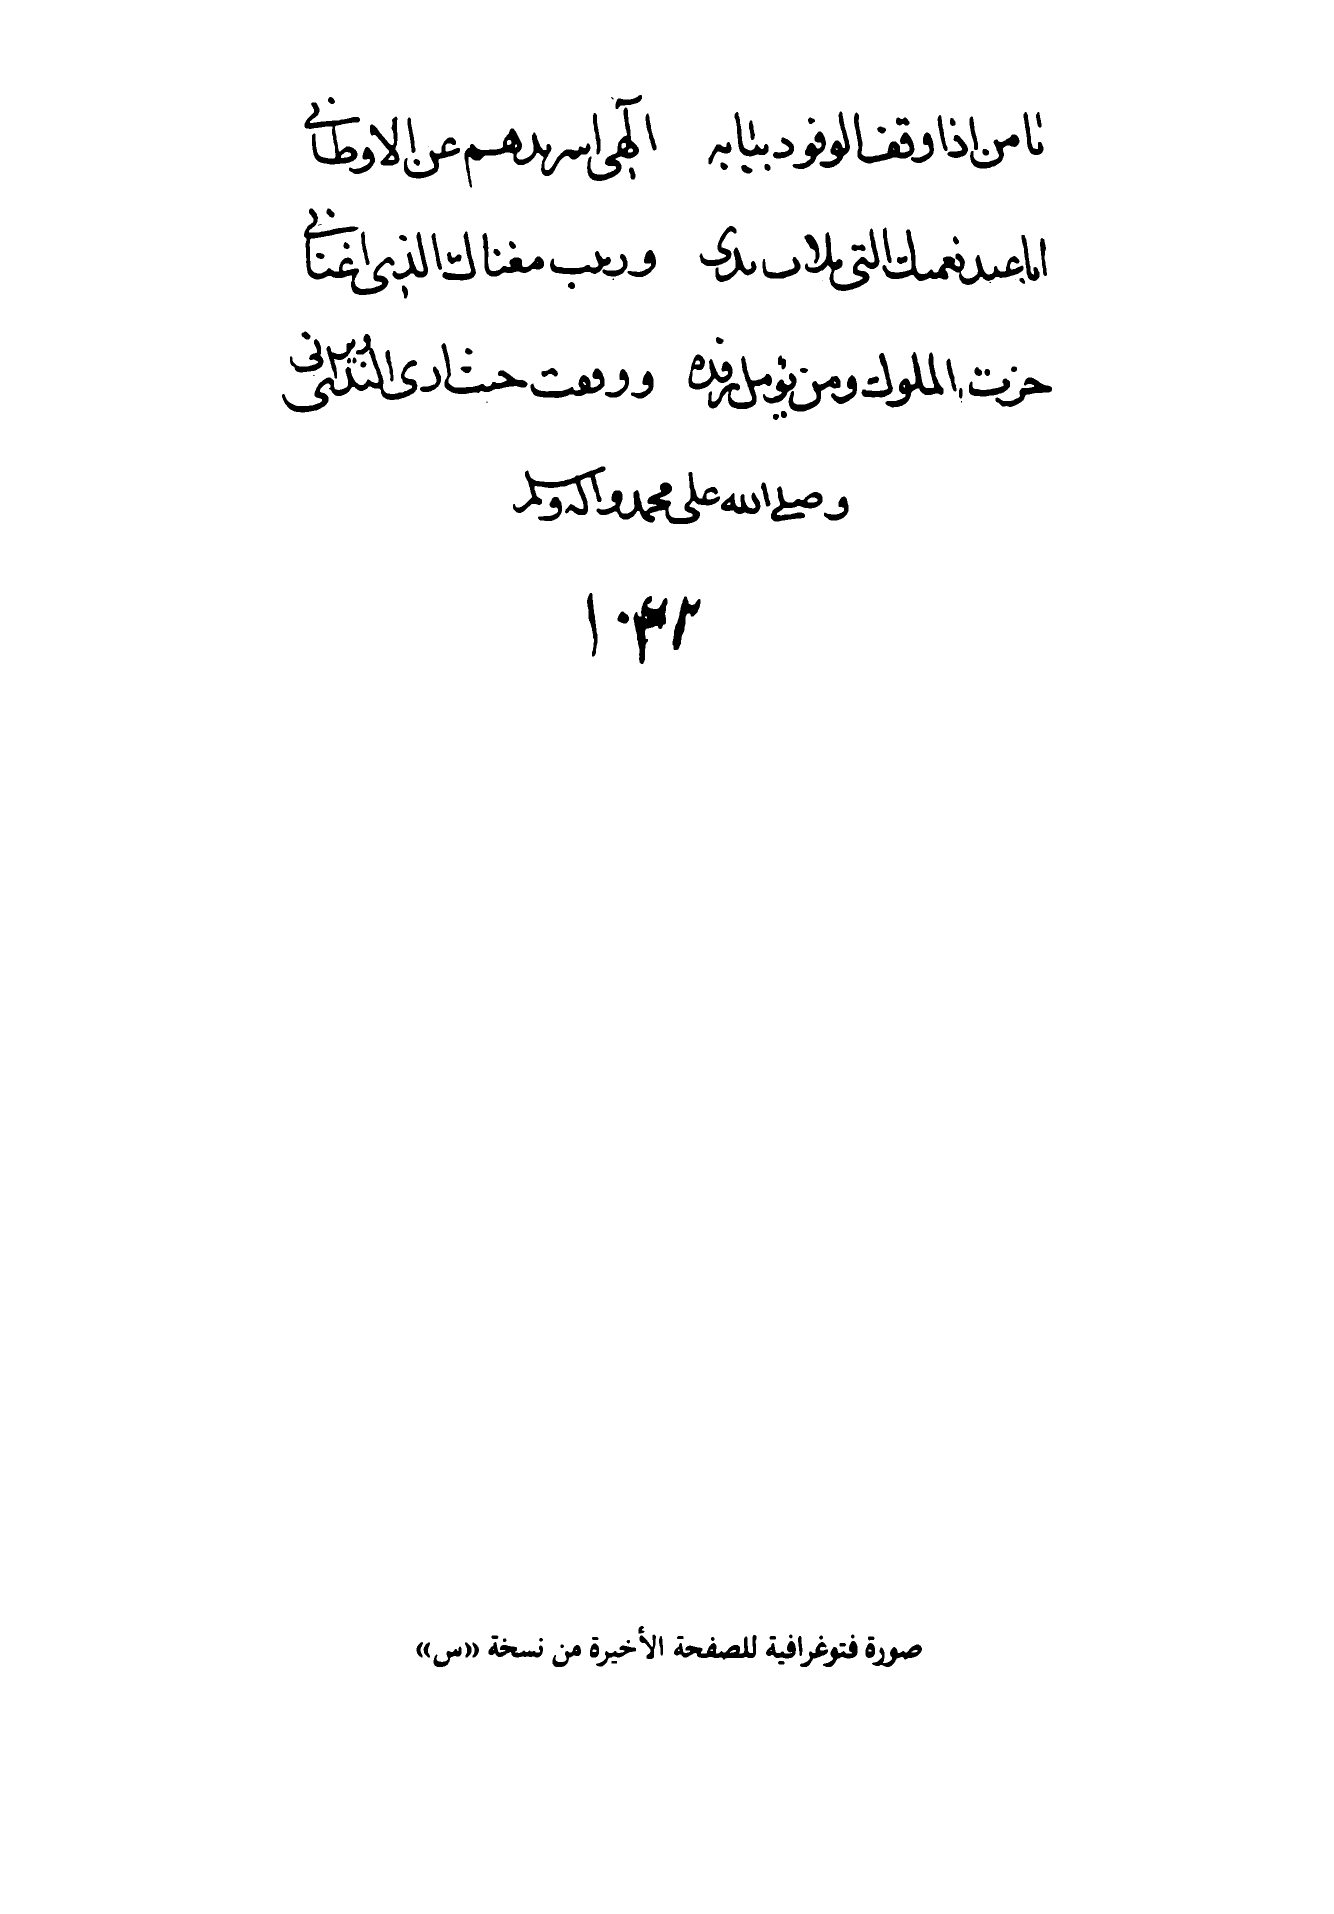 يا من اذا وقف الوفود ببابه الهى اسريدهم عن الاوطان
انا عبد نعمتك التى ملات يدى وربيب مغناك الذى اغنانى
جزت الملوك ومن يؤمل رفده ووقفت حيث ارى الندى ويرانى
وصلى الله على محمد واله وسلم
١٠٣٢
صورة فتوغرافية للصفحة الأخيرة من نسخة «س»